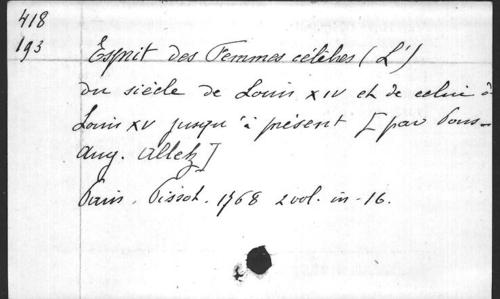 418
193
Esprit des Femmes célèbres (L')
du siècle de Louis XIV et de celui de
Louis XV jusqu'à présent [par Pons-
Aug. Alletz]
Paris. Pissot. 1768 2 vol. in-16.